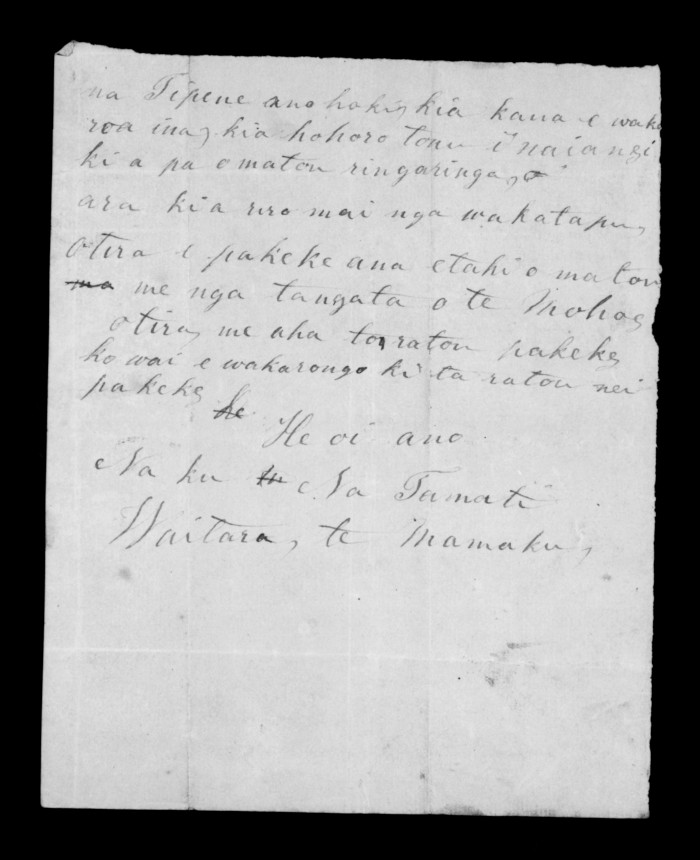 na Tipene ano hoki, kia kaua e waka
roa ina, kia hohoro tonu i naia nei
ki a pa o matou ringaringa,
ara kia riro mai nga wakatapu,
otira e pakeke ana etahi o matou
me nga tangata o te Mohoe
otira, me aha to ratou pakeke,
ko wai e wakarongo ki ta ratou nei
pakeke,
He oi ano
Na ku Na Tamati
Waitara, te Mamaku,